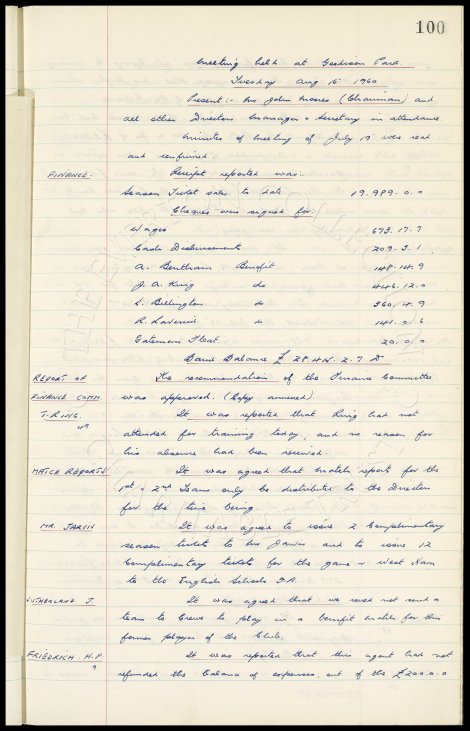 100
Meeting held at Goodison Park
Tuesday Aug 16 1960
Present :- Mr John Moores (Chairman) and
all other Directors. Manager & Secretary in attendance.
Minutes of Meeting of July 19 were read
and confirmed.
FINANCE. Receipt reported was:-
Season Ticket sales to date 19.989.0.0
Cheques were signed for:-
Wages 673.17.7
Cash Disbursements 209.3.1
A. Bentham. Benefit 148.14.9
J. A. King do 446.12.0
S. Billington do 360.4.9
R. Laverick do 141.0.6
Gatemens Float 20.0.0
Bank Balance £ 28.415.2.7 D
REPORT OF The recommendation of the Finance Committee
FINANCE COMM. was approved. (Copy annexed)
T. RING. It was reported that Ring had not
attended for training today, and no reason for
his absence had been received.
MATCH REPORTS It was agreed that match reports for the
1st & 2nd Teams only be distributed to the Directors
for the time being.
MR. JARVIS It was agreed to issue 2 Complimentary
season tickets to Mr Jarvis and to issue 12
Complimentary tickets for the game v West Ham
to the English Schools F.A.
SUTHERLAND. J. It was agreed that we could not send a
team to Crewe to play in a benefit match for this
former player of the Club.
FRIEDRICH. H.P. It was reported that this agent had not
refunded the balance of expenses, out of the £200.0.0